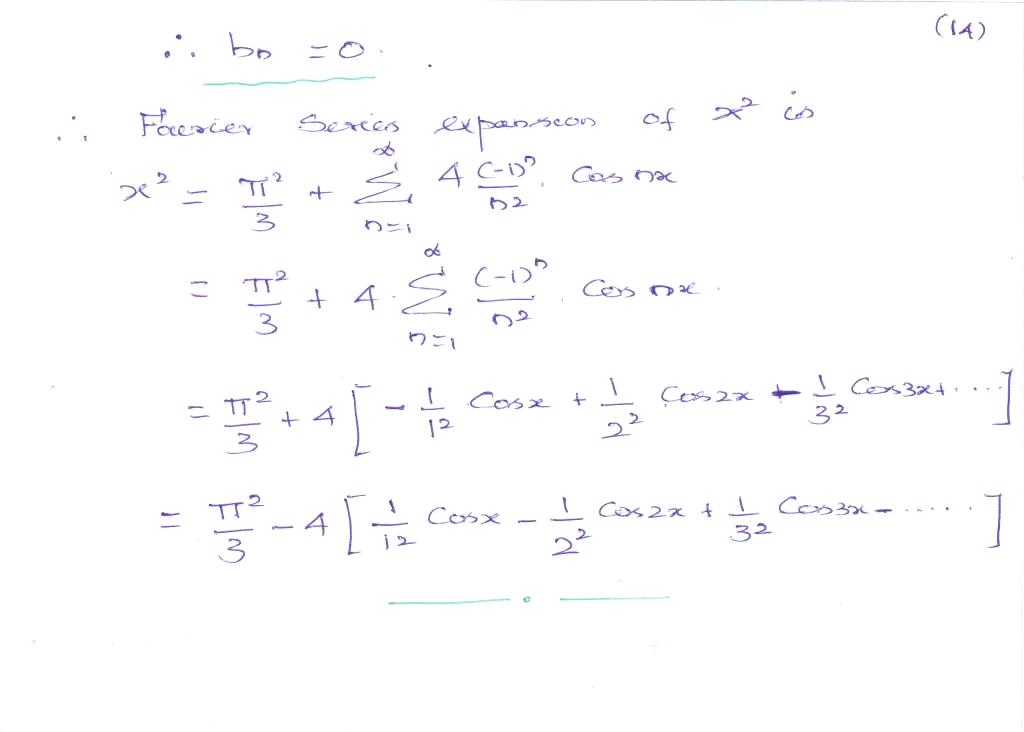 (14)
∴ bn = 0.
∴ Fourier Series expansion of x² is
x² = π²/3 + Σ_{n=1}^{∞} 4 (-1)ⁿ/n² . Cos nx
= π²/3 + 4 . Σ_{n=1}^{∞} (-1)ⁿ/n² . Cos nx .
= π²/3 + 4 [ - 1/1² Cosx + 1/2² Cos2x - 1/3² Cos3x + .... ]
= π²/3 - 4 [ 1/1² Cosx - 1/2² Cos2x + 1/3² Cos3x - ..... ]